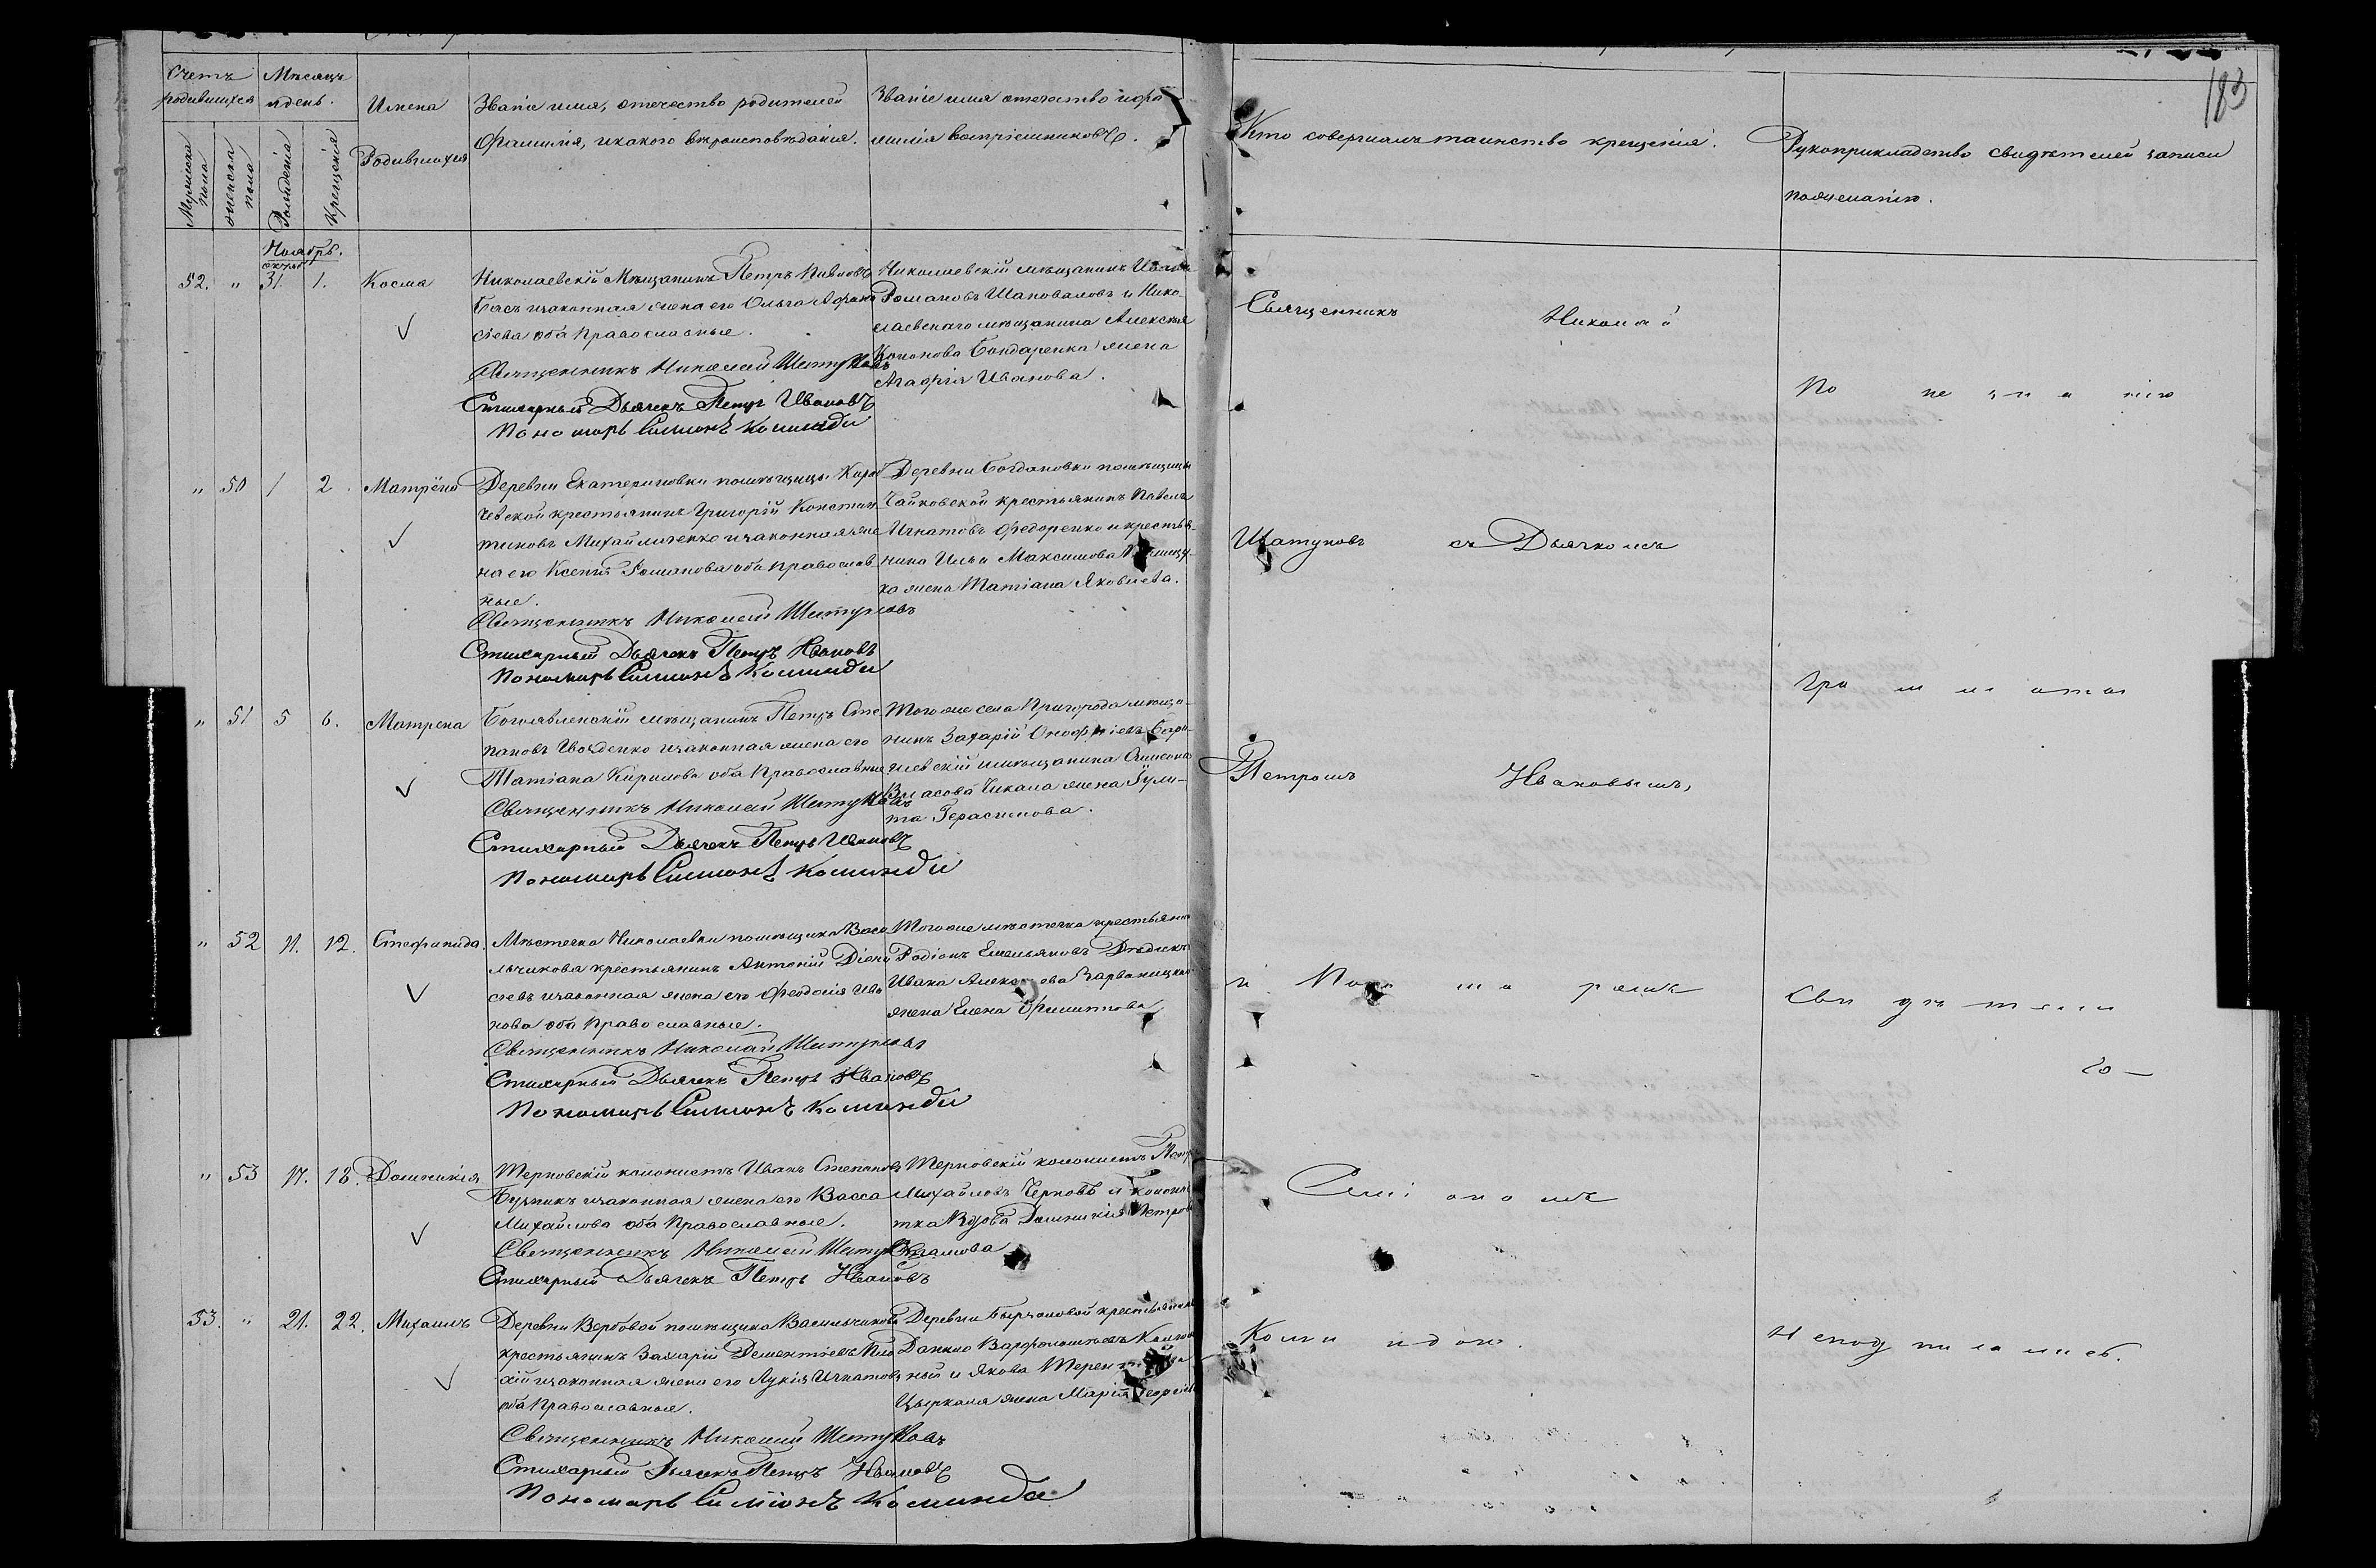 183
Счетъ родившихся
Мѣсяцъ и день.
Имена Родившихся
Званіе имя, отчество родителей
Фамилія, и какого вѣроисповѣданія.
Званіе имя отчество и фа
милія воспріемниковъ.
Кто совершалъ таинство крещенія.
Рукоприкладство свидѣтелей записи
по желанію.
Мужеска пола
Женска пола
Рожденія
Крещенія
Ноябрь.
52. " 31. 1. Косма
Николаевскій Мѣщанинъ Петръ Павловъ
Басъ и законная жена его Ольга
сѣева оба Православные.
Священникъ Николай Шатуновъ
Стихарный Дьячекъ Петръ Ивановъ
Пономарь Симіонъ Коминди
Николаевскій мѣщанинъ Иванъ
Романовъ Шаповаловъ и Нико-
лаевскаго мѣщанина Алексѣя
Кононова Бондаренка жена
Агафія Иванова.
" 50 1 2. Матрёна
Деревни Екатериновки помѣщицы
чевской крестьянинъ Григорій Констан
тиновъ Михайличенко и законная же
на его Ксенія Романова оба православ
ные.
Священникъ Николай Шатуновъ
Стихарный Дьячекъ Петръ Ивановъ
Пономарь Симіонъ Коминди
Деревни Богдановки помѣщицы
Чайковской крестьянинъ Павелъ
Игнатовъ Федоренко и крестья-
нина Ильи Максимова
ка жена Татіана Яковлева.
" 51 5 6. Матрена
Богоявленскій мѣщанинъ Петръ Сте
пановъ и законная жена его
Татіана Кирилова оба Православные
Священникъ Николай Шатуновъ
Стихарный Дьячекъ Петръ Ивановъ
Пономарь Симіонъ Коминди
Того же села Пригорода мѣща-
нинъ Захарій Онофріевъ
мѣщанина Симеона
Власова Чикала жена Іули-
та Герасимова.
" 52 11. 12. Стефанида.
Мѣстечка Николаевки помѣщика Васи
льчикова крестьянинъ Антоній Діони
сіевъ и законная жена его Феодосія Ива
нова оба Православные.
Священникъ Николай Шатуновъ
Стихарный Дьячекъ Петръ Ивановъ
Пономарь Симіонъ Коминди
Того же мѣстечка крестьяне
Родіонъ Емельяновъ
Ивана
жена Елена Филиппова
" 53 17. 18. Домникія
Терновскій колонистъ Иванъ Степановъ
и законная жена его Васса
Михайлова оба Православные.
Священникъ Николай Шатуновъ
Стихарный Дьячекъ Петръ Ивановъ
Терновскій колонистъ Петръ
Михайловъ Черновъ и колонис
тка Вдова Домникія Петрова
53. " 21. 22. Михаилъ
Деревни Вербовой помѣщика Васильчикова
крестьянинъ Захарій Дементіевъ
и законная жена его Лукія Игнатова
оба Православные.
Священникъ Николай Шатуновъ
Стихарный Дьячекъ Петръ Ивановъ
Пономарь Симіонъ Коминда
Деревни крестьянинъ
Данило Варфоломѣевъ
ный и Якова
жена Марія Георгіева
Священникъ Николай
Шатуновъ съ Дьячкомъ
Петромъ Ивановымъ,
и Пономаремъ
Симіономъ
Коминдою.
По незнанію
грамматы
Свидѣтели
со-
неподписались.